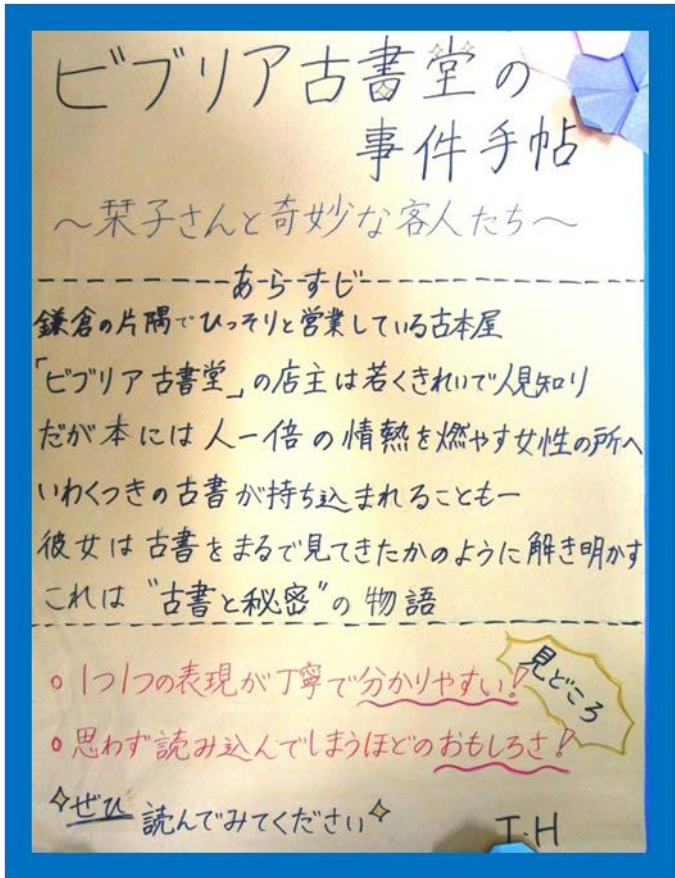 ビブリア古書堂の
事件手帖
～栞子さんと奇妙な客人たち～
あらすじ
鎌倉の片隅でひっそりと営業している古本屋
「ビブリア古書堂」の店主は若くきれいで人見知り
だが本には人一倍の情熱を燃やす女性の所へ
いわくつきの古書が持ち込まれることもー
彼女は古書をまるで見てきたかのように解き明かす
これは"古書と秘密"の物語
見どころ
○1つ1つの表現が丁寧で分かりやすい!
○思わず読み込んでしまうほどのおもしろさ!
ぜひ読んでみてください
I・H